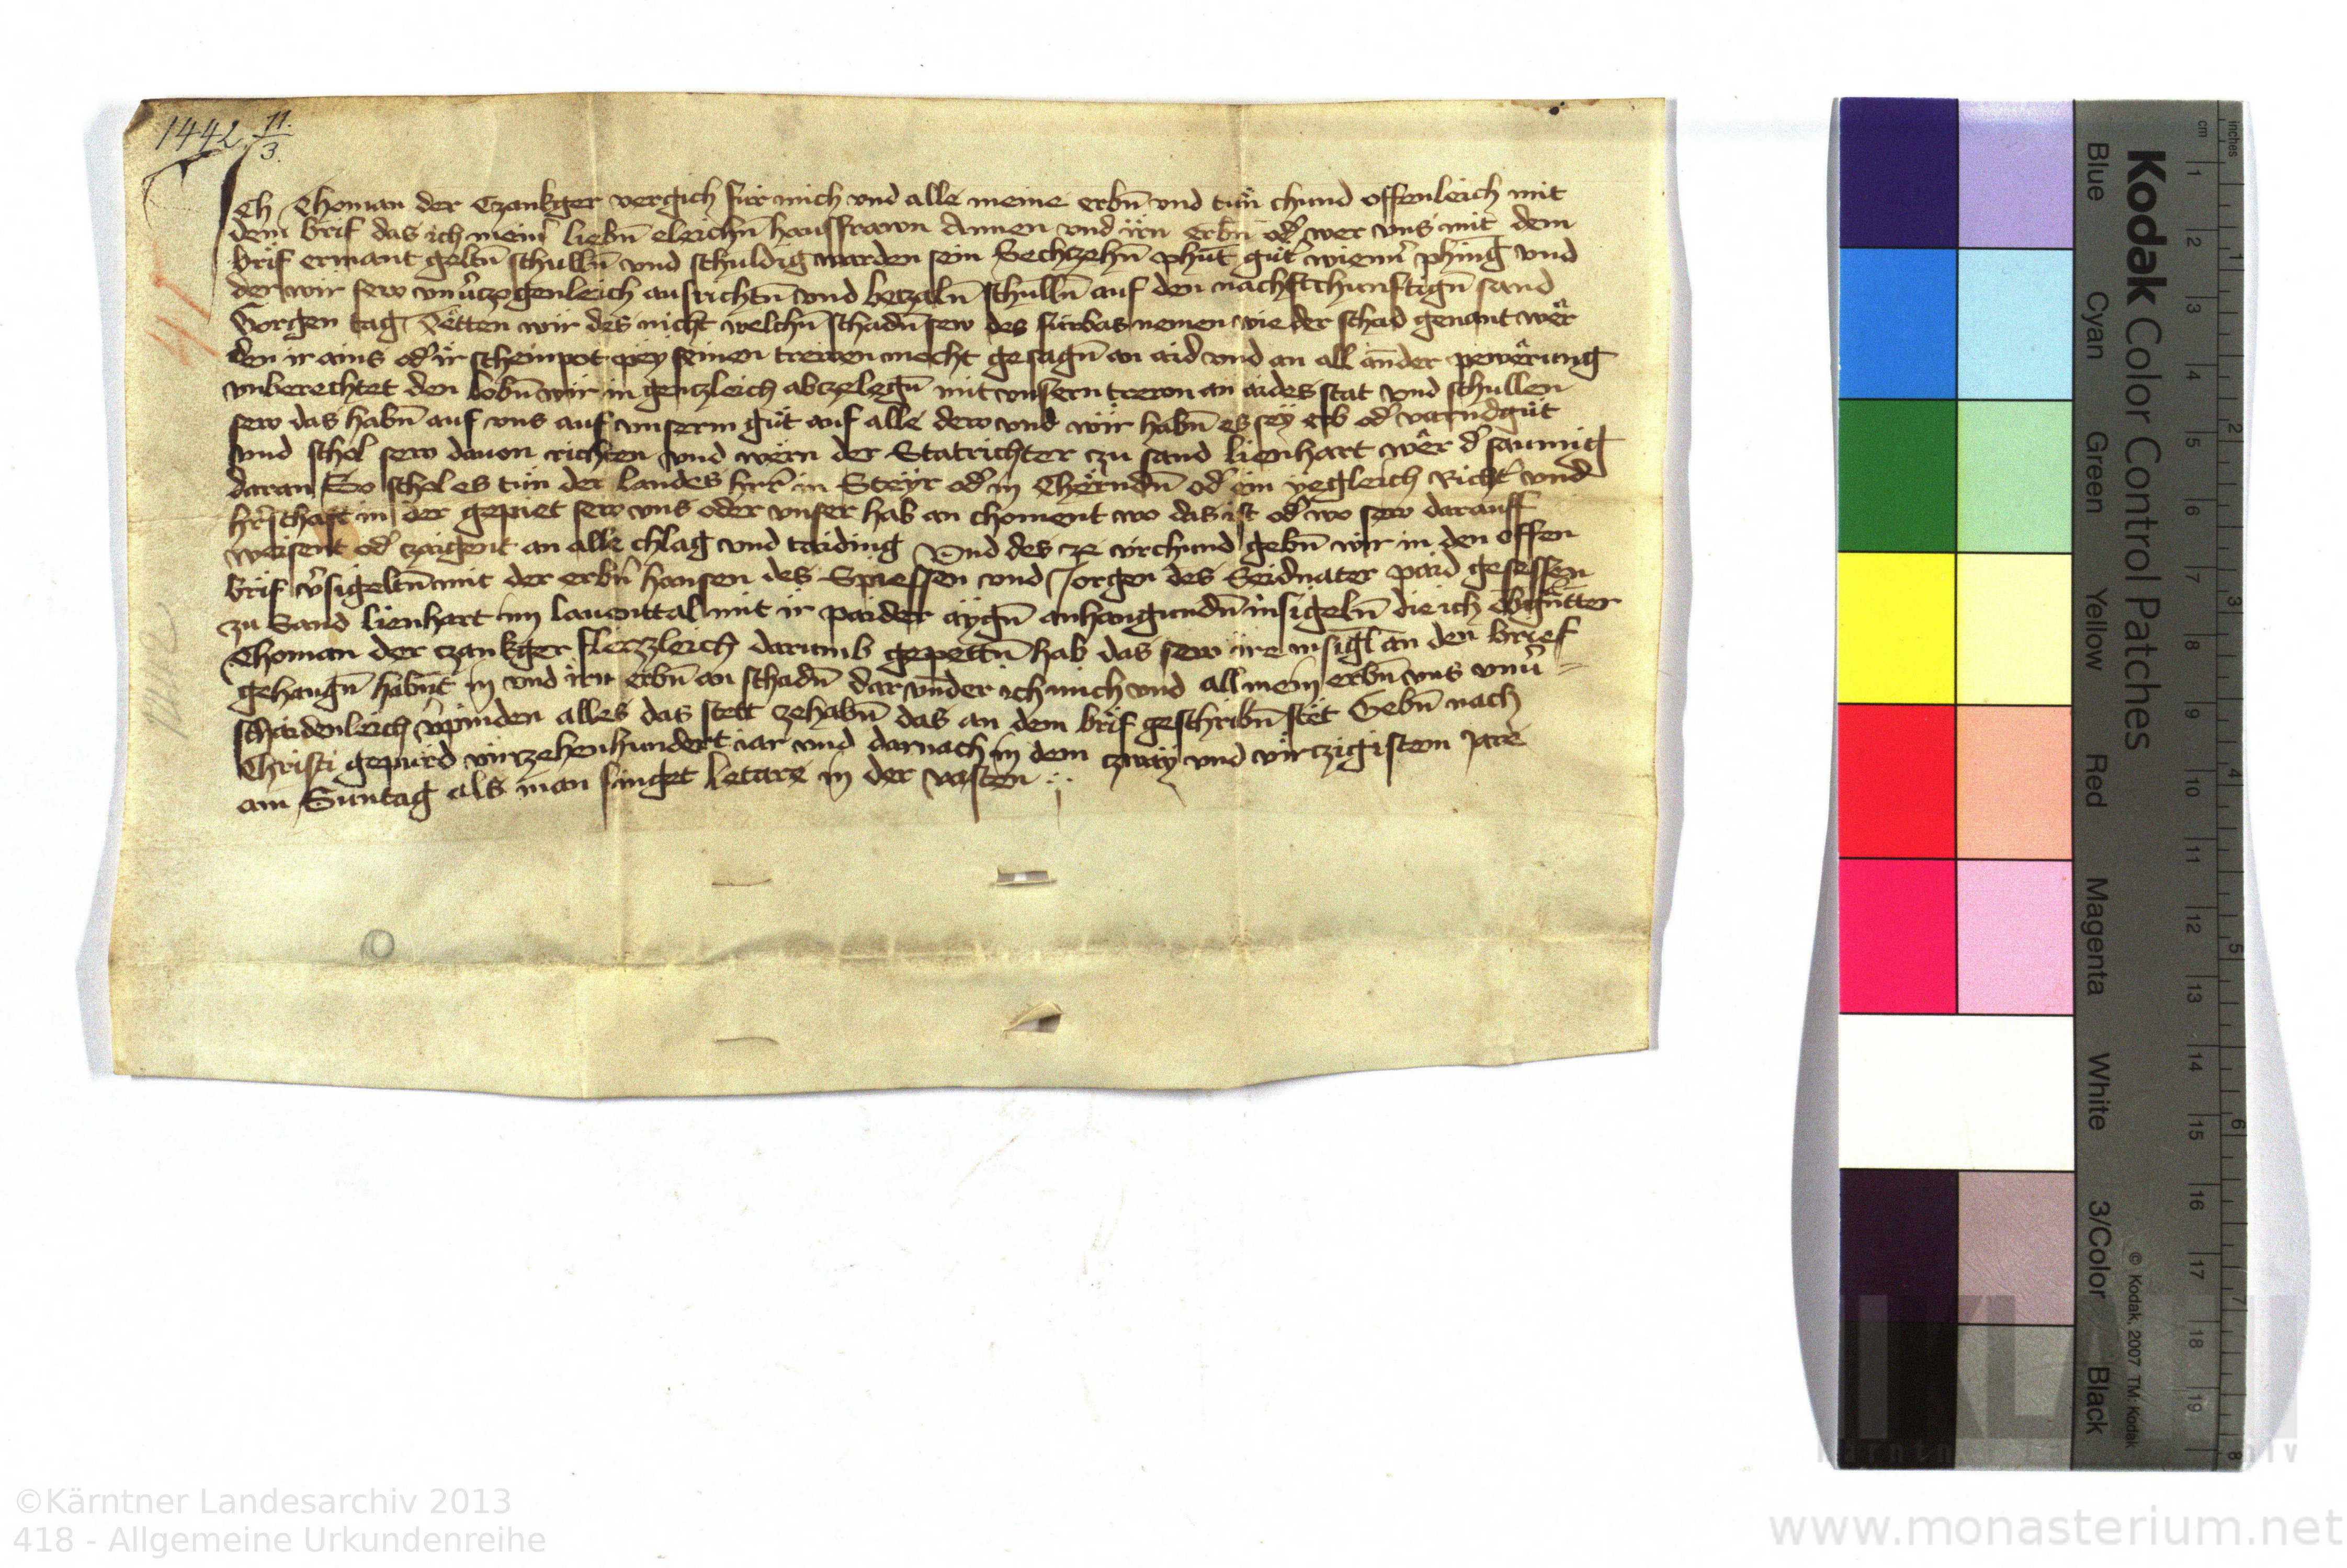 1442 11/3.
Ich Thoman der Czankger vergich für mich vnd alle meine erbn̄ vnd tün chund offenleich mit
dem brif das ich meinˀ liebn̄ eleichn̄ hausfrawn Annen vnd irn erbn̄ odˀ wer vns mit dem
brif ermant geltn̄ schulln̄ vnd schuldig warden sein Sechtzehn̄ phūt gütˀ wiennˀ phīng vnd
der wir sew vnuˀczogenleich ausrichtn̄ vnd betzaln̄ schulln̄ auf den nachstchunftign̄ sand
Gorgen tag Tëtten wir des nicht welchn̄ schadn̄ sew des fürbas nemen wie der schad genant wër
den ir ains odˀ ir scheinpot pey seinen trewen mocht gesagn̄ an aid vnd an all ander pewërung
vnberechtet den lobn̄ wir in genczleich abczelegn̄ mit vnsern trewn an aides stat vnd schullen
sew das habn̄ auf vns auf vnserm güt auf alle dew vnd wir habn̄ es sey erb odˀ varndgüt
vnd schol sew dauon richten vnd wërn der Statrichter czu sand Lienhart wër dˀ saumig
daran So schol es tün der Landes hˀr in Steyr odˀ in Chërndn̄ odˀ ein yegleich Richtˀ vnd
hˀrschaft in der gepiet sew vns oder vnser hab an choment wo das ist odˀ wo sew darauff
weisent odˀ zaigent an alle chlag vnd taiding Vnd des ze vrchund gebn̄ wir in den offen
brif vˀsigeltn̄ mit der erbn̄ Hansen des Spiessen vnd Jorgen des Seidnater paid gesessen
zu Sand Lienhart im Lauenttal mit ir paider aygn̄ anhangundn̄ insigeln̄ die ich obgn̄tter
Thoman der Czankger fleizzleich darumb gepettn̄ hab das sew ire insigl an den brief
gehangn̄ habn̄t in vnd irn erbn̄ an schadn̄ darvnder ich mich vnd all mein erbn̄ vns vnuˀ=
schaidenleich vˀpinden alles das stett zehabn̄ das an dem brif geschribn̄ stet Gebn̄ nach
Christi gepürd virzehenhundert iar vnd darnach in dem czway vnd virczigistem Jare
am Suntag als man singet Letare in der vasten
Kodak Color Control Patches
Blue Cyan Green Yellow Red Magenta White 3/Color Black
© Kodak, 2007 TM: Kodak
inches 1 2 3 4 5 6 7 8
cm 1 2 3 4 5 6 7 8 9 10 11 12 13 14 15 16 17 18 19
©Kärntner Landesarchiv 2013
418 - Allgemeine Urkundenreihe
www.monasterium.net